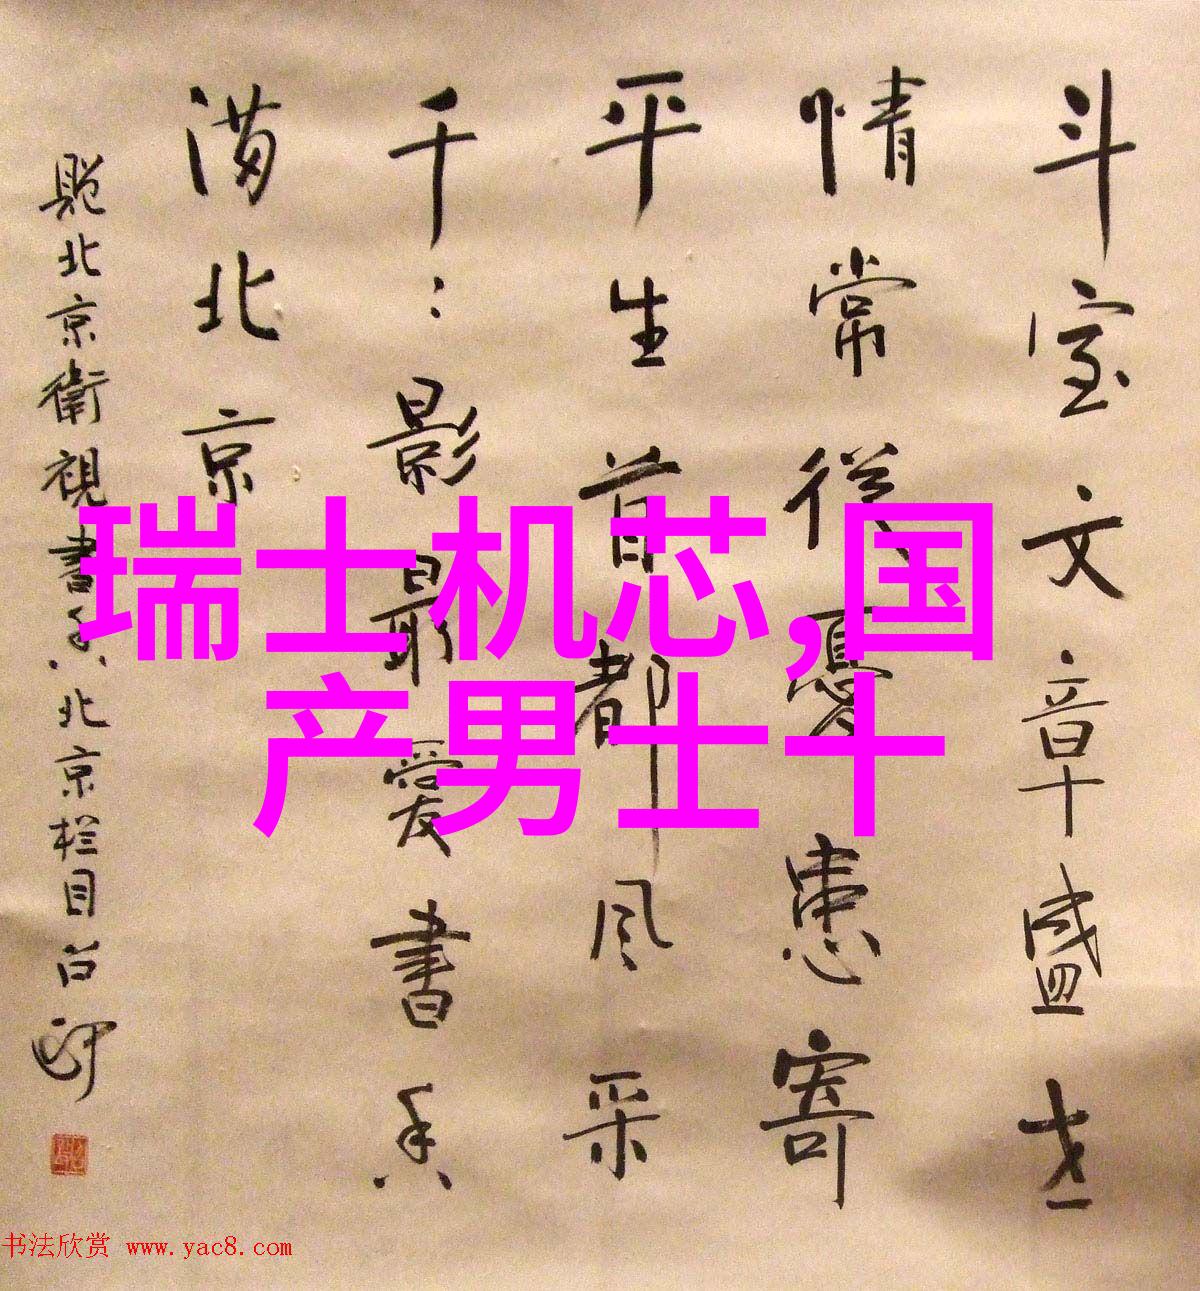 斗室文章盛世
情常從憂患寄
平生首都風采
千：影最愛書香
满北京
題北京衛視書香北京栏目
瑞士机芯,国
产男士十
书法欣赏 www.yac8.com